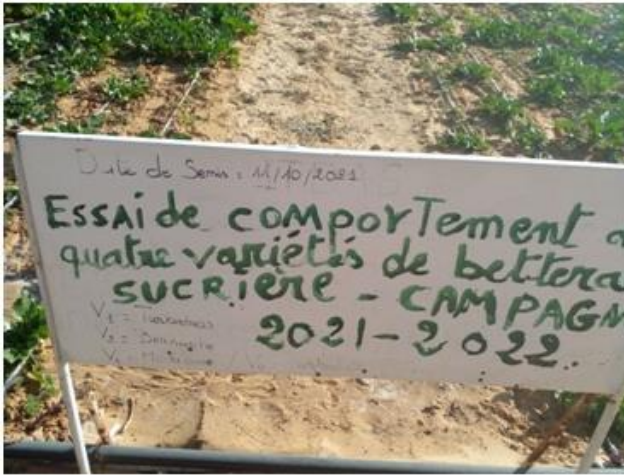 Date de Semis : 11/10/2021
ESSAi de comporTement
quatre variétés de bettera
SUCRiERE - CAMPAGN
2021-2022.
V1 =
V2 =